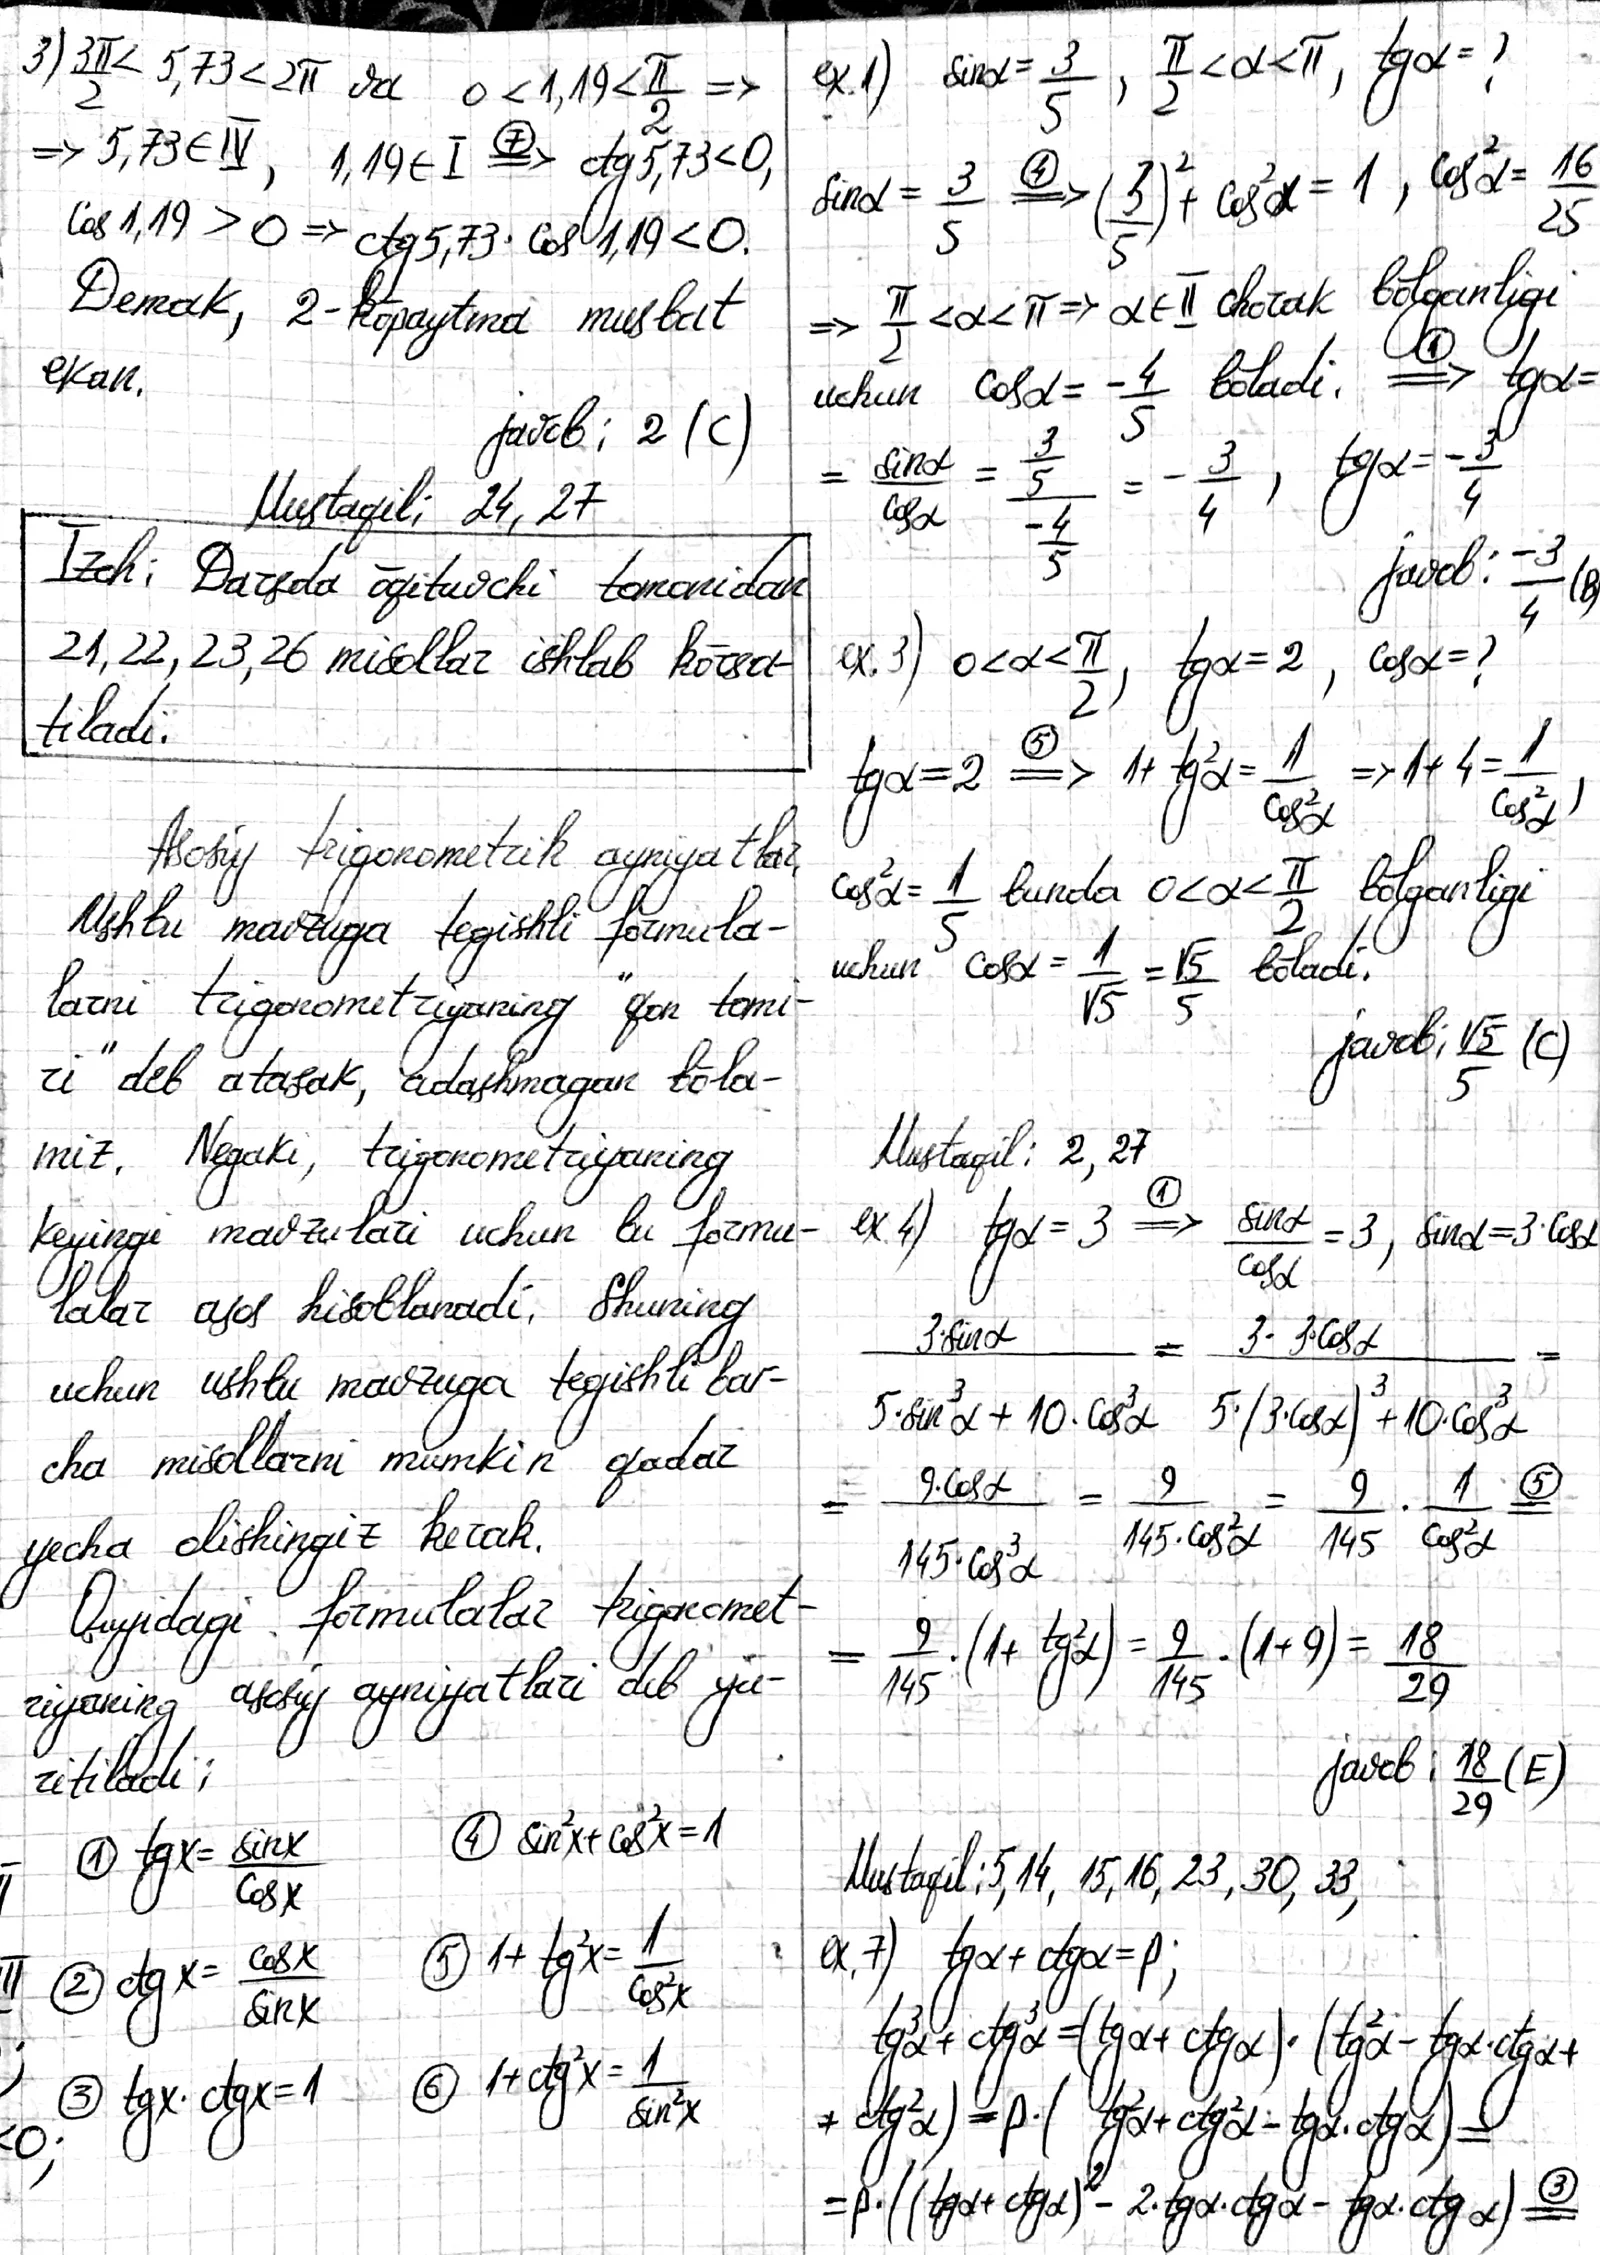 3) 3π/2 < 5,73 < 2π va 0 < 1,19 < π/2 =>
=> 5,73 ∈ IV, 1,19 ∈ I ⑦=> ctg5,73 < 0,
cos1,19 > 0 => ctg5,73 · cos1,19 < 0.
Demak, 2-kōpaytma musbat
ekan.
javob: 2 (C)
Mustaqil: 24, 27
Izoh: Darsda ōqituvchi tomonidan
21, 22, 23, 26 misollar ishlab kōrsa-
tiladi.
Asosiy trigonometrik ayniyatlar.
Ushbu mavzuga tegishli formula-
larni trigonometriyaning "qon tomi-
ri" deb atasak, adashmagan bōla-
miz. Negaki, trigonometriyaning
keyingi mavzulari uchun bu formu-
lalar asos hisoblanadi. Shuning
uchun ushbu mavzuga tegishli bar-
cha misollarni mumkin qadar
yecha olishingiz kerak.
Quyidagi formulalar trigonomet-
riyaning asosiy ayniyatlari deb yu-
ritiladi:
① tgx = sinx/cosx ④ sin²x + cos²x = 1
② ctgx = cosx/sinx ⑤ 1 + tg²x = 1/cos²x
③ tgx · ctgx = 1 ⑥ 1 + ctg²x = 1/sin²x
<0;
ex.1) sinα = 3/5, π/2 < α < π, tgα = ?
sinα = 3/5 ④=> (3/5)² + cos²α = 1, cos²α = 16/25
=> π/2 < α < π => α ∈ II chorak bōlganligi
uchun cosα = -4/5 bōladi. ①=> tgα =
= sinα/cosα = (3/5)/(-4/5) = -3/4, tgα = -3/4
javob: -3/4 (B)
ex.3) 0 < α < π/2, tgα = 2, cosα = ?
tgα = 2 ⑤=> 1 + tg²α = 1/cos²α => 1 + 4 = 1/cos²α,
cos²α = 1/5 bunda 0 < α < π/2 bōlganligi
uchun cosα = 1/√5 = √5/5 bōladi.
javob: √5/5 (C)
Mustaqil: 2, 27
ex.4) tgα = 3 ①=> sinα/cosα = 3, sinα = 3·cosα
3·sinα/(5·sin³α + 10·cos³α) = 3·3·cosα/(5·(3·cosα)³ + 10·cos³α) =
= 9·cosα/(145·cos³α) = 9/(145·cos²α) = 9/145 · 1/cos²α ⑤=
= 9/145 · (1 + tg²α) = 9/145 · (1 + 9) = 18/29
javob: 18/29 (E)
Mustaqil: 5, 14, 15, 16, 23, 30, 33,
ex.7) tgα + ctgα = p;
tg³α + ctg³α = (tgα + ctgα) · (tg²α - tgα·ctgα +
+ ctg²α) = p · (tg²α + ctg²α - tgα·ctgα) =
= p · ((tgα + ctgα)² - 2·tgα·ctgα - tgα·ctgα) ③=